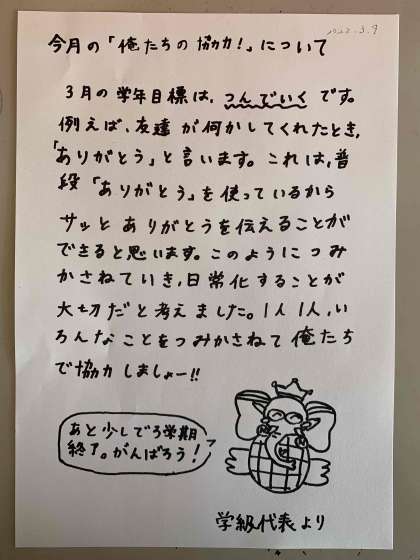 2022.3.9
今月の「俺たちの協力!」について
3月の学年目標は、つんでいくです。
例えば、友達が何かしてくれたとき、
「ありがとう」と言います。これは、普
段「ありがとう」を使っているから
サッとありがとうを伝えることが
できると思います。このようにつみ
かさねていき、日常化することが
大切だと考えました。1人1人、い
ろんなことをつみかさねて俺たち
で協力しましょー!!
あと少しで3学期
終了。がんばろう!
学級代表より